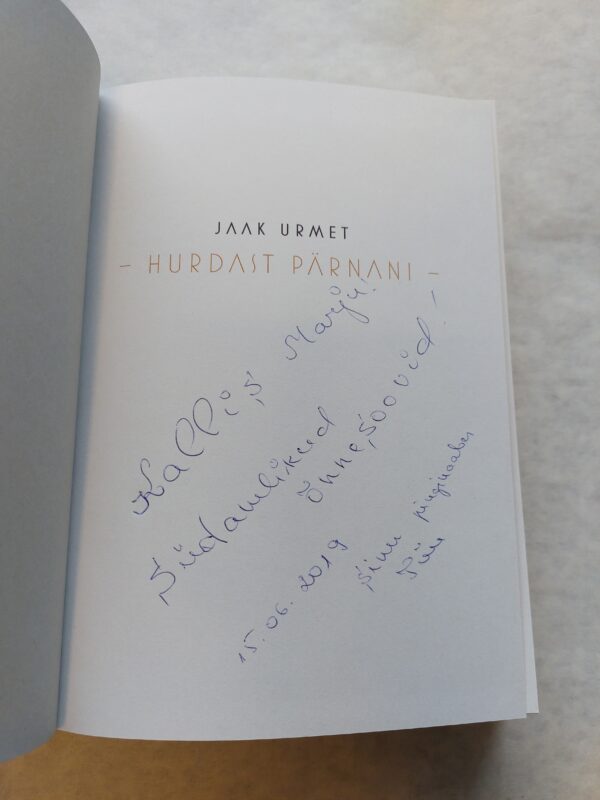 JAAK URMET
– HURDAST PÄRNANI –
Kallis Marju!
Südamlikud
Õnnesoovid!
15.06.2019
Sinu pinginaaber
Tiiu